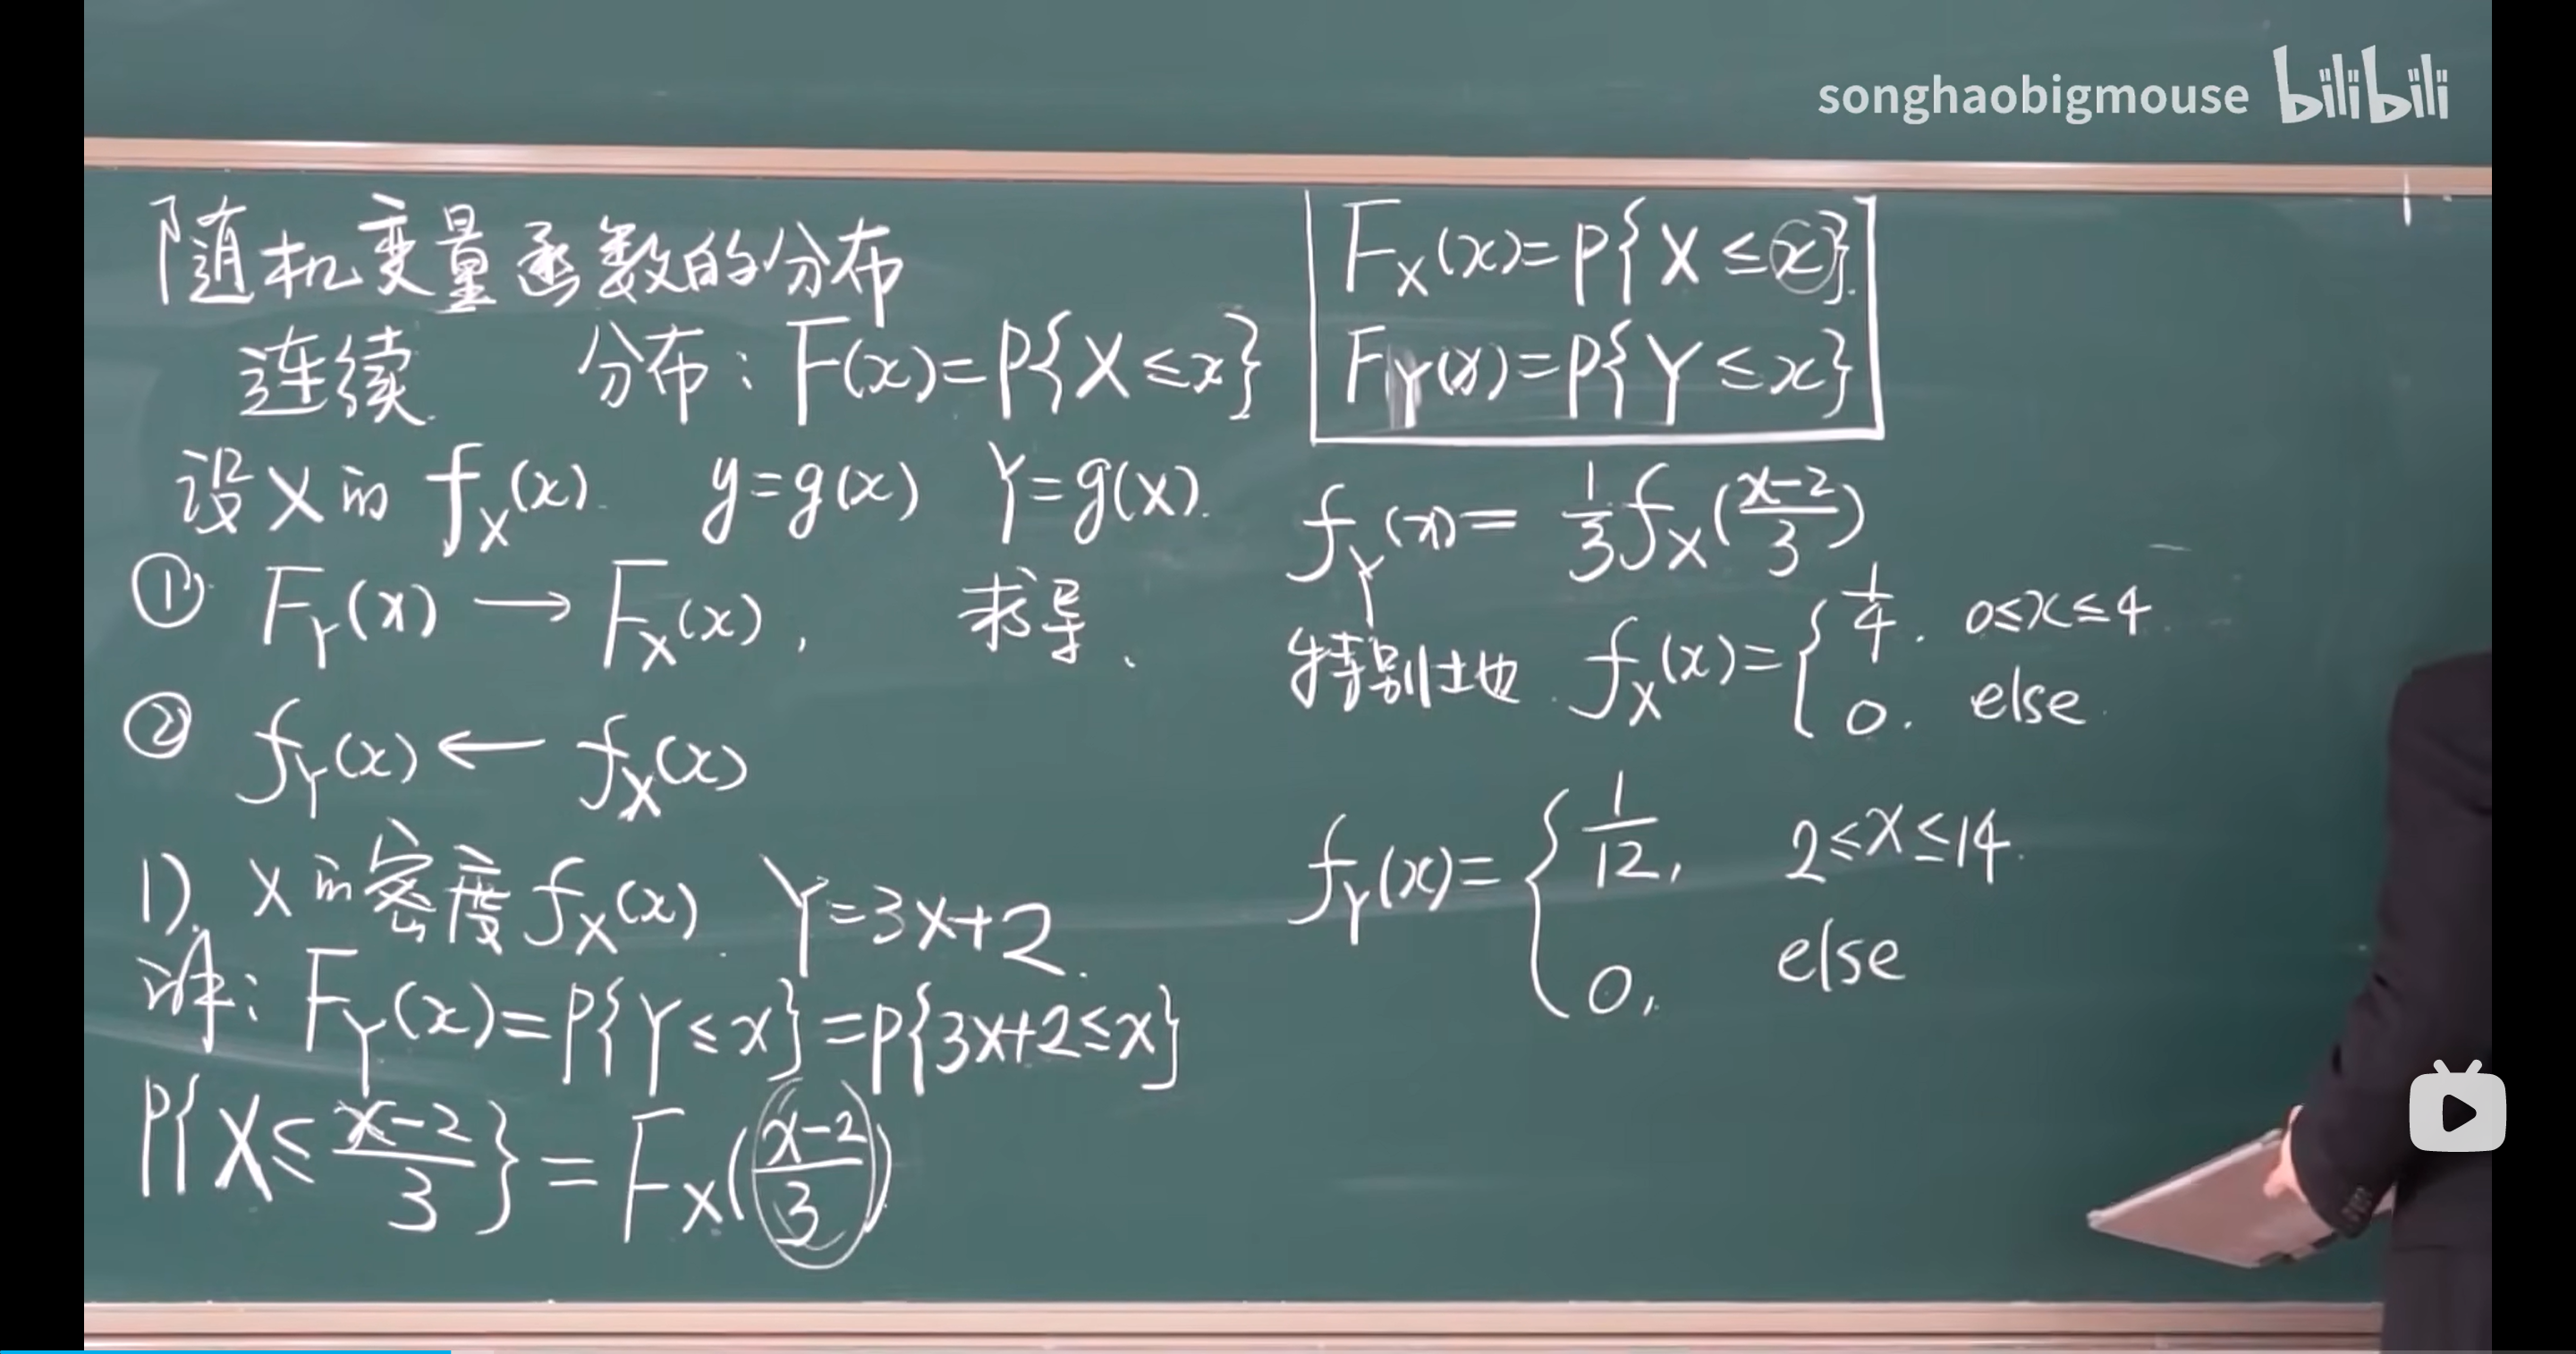 songhaobigmouse bilibili
随机变量函数的分布
连续 分布：F(x)=P{X≤x}
设X的 f_X(x). y=g(x) Y=g(X).
① F_Y(x) → F_X(x), 求导.
② f_Y(x) ← f_X(x)
1). X的密度 f_X(x). Y=3X+2.
F_Y(x)=P{Y≤x}=P{3X+2≤x}
P{X≤(x-2)/3}=F_X((x-2)/3)
F_X(x)=P{X≤x}.
F_Y(x)=P{Y≤x}
f_Y(x)=1/3 f_X((x-2)/3)
特别地. f_X(x)={1/4. 0≤x≤4
0. else.
f_Y(x)={1/12, 2≤x≤14.
0, else